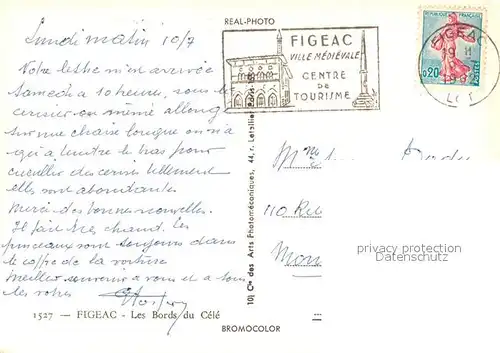 REAL-PHOTO
Lundi matin 10/7
Votre lettre m'est arrivée
Samedi à 10 heures, sous le
cerisier ou même allongé
sur une chaise longue on n'a
qu'à tendre le bras pour
cueillir des cerises tellement
elles sont abondantes.
Merci des bonnes nouvelles.
Il fait très chaud. Les
pinceaux sont toujours dans
le coffre de la voiture
Meilleur souvenir à vous et à tous
les vôtres
1527 — FIGEAC - Les Bords du Célé
BROMOCOLOR
10) Cie des Arts Photomécaniques, 44, r. Letellier
FIGEAC
VILLE MÉDIÉVALE
CENTRE
DE
TOURISME
FIGEAC
LOT
0,20
POSTES
Mme
110 Rue
privacy protection
Datenschutz